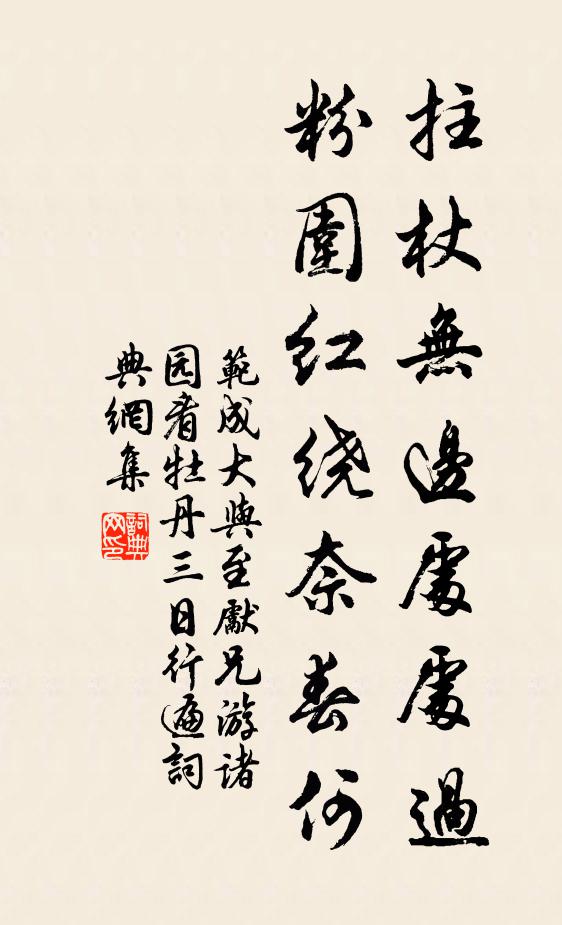 拄杖無邊處處過
粉圍紅绕奈春何
範成大與至獻兄游诸
园看牡丹三日行遍詞
典網集
詞典网印